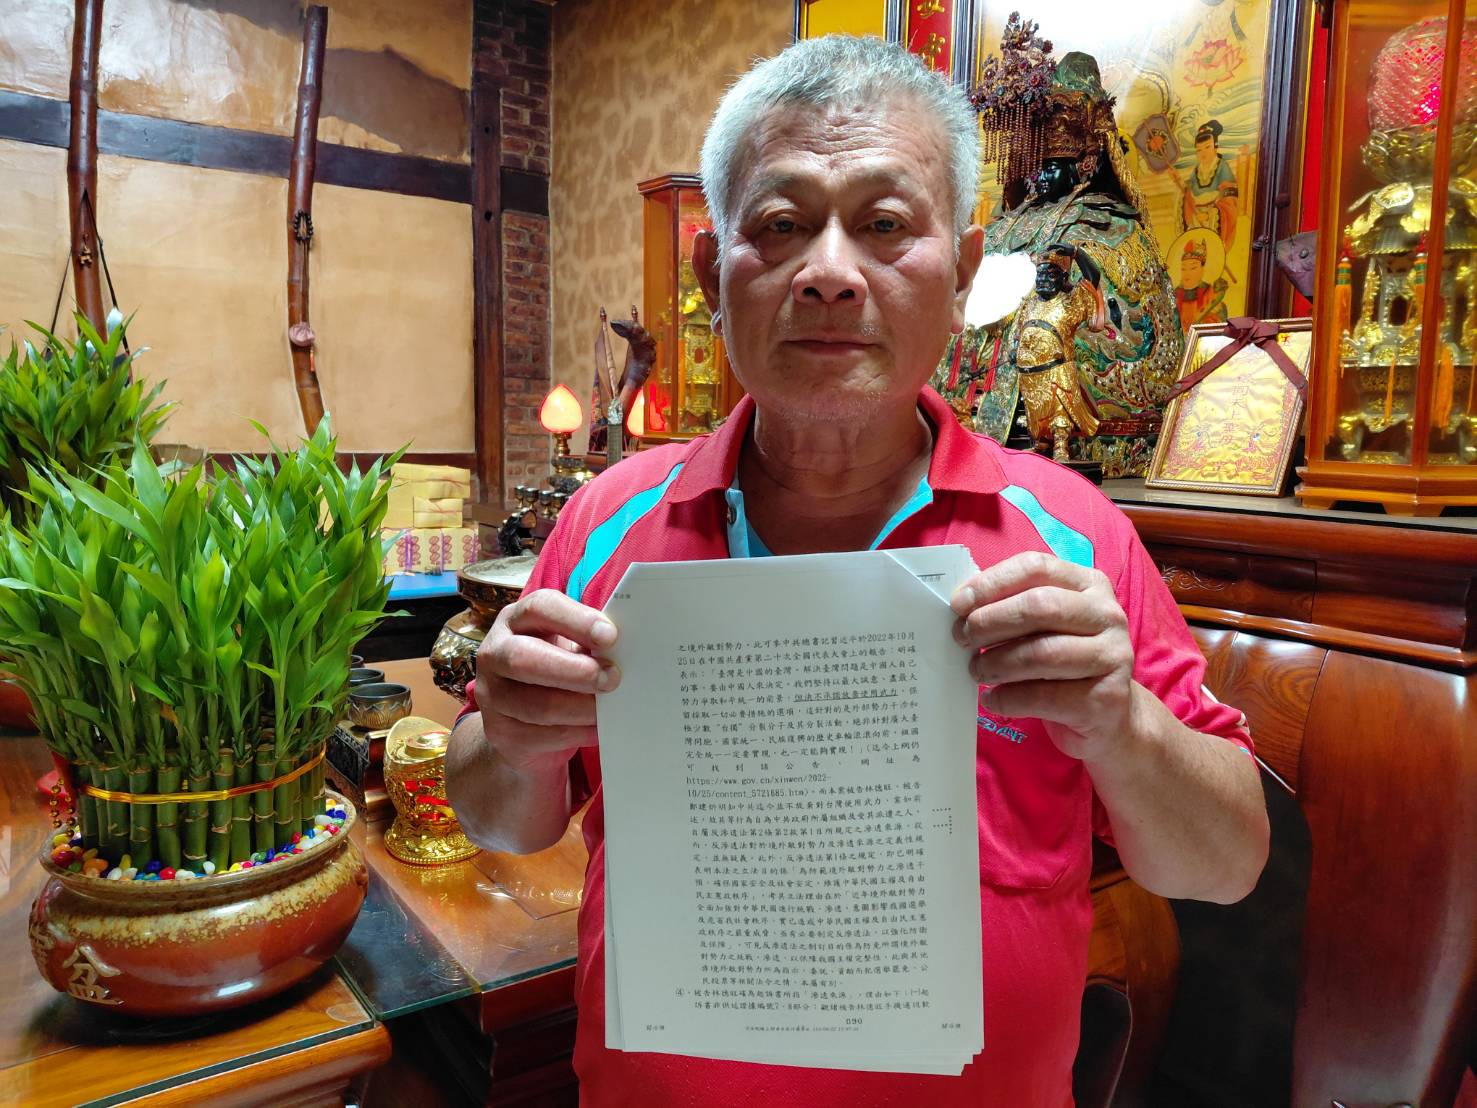 之境外敵對勢力。此可參中共總書記習近平於2022年10月
25日在中國共產黨第二十次全國代表大會上的報告：明確
表示：「臺灣是中國的臺灣。解決臺灣問題是中國人自己
的事，要由中國人來決定。我們堅持以最大誠意、盡最大
努力爭取和平統一的前景，但決不承諾放棄使用武力，保
留採取一切必要措施的選項，這針對的是外部勢力干涉和
極少數"台獨"分裂分子及其分裂活動，絕非針對廣大臺
灣同胞。國家統一、民族復興的歷史車輪滾滾向前，祖國
完全統一一定要實現，也一定能夠實現！」(迄今上網仍
可找到該公告，網址為
https://www.gov.cn/xinwen/2022-
10/25/content_5721685.htm)。而本案被告林德旺、被告
鄭建炘明知中共迄今並不放棄對台灣使用武力，業如前
述，故其等行為自為中共政府所屬組織及受其派遣之人，
自屬反滲透法第2條第2款第1目所規定之滲透來源。從
而，反滲透法對於境外敵對勢力及滲透來源之定義性規
定，並無疑義。此外，反滲透法第1條之規定，即已明確
表明本法之立法目的係「為防範境外敵對勢力之滲透干
預，確保國家安全及社會安定，維護中華民國主權及自由
民主憲政秩序」，考其立法理由在於「近年境外敵對勢力
全面加強對中華民國進行統戰、滲透，意圖影響我國選舉
及危害我社會秩序，實已造成中華民國主權及自由民主憲
政秩序之嚴重威脅，亟有必要制定反滲透法，以強化防衛
及保障」，可見反滲透法之制訂目的係為防免所謂境外敵
對勢力之統戰、滲透，以保障我國主權完整性，此與其他
非境外敵對勢力所為指示、委託、資助而犯選舉罷免、公
民投票等相關法令之情，本屬有別。
④、被告林德旺確為起訴書所指「滲透來源」，理由如下：㈠起
訴書非供述證據編號7、8部分：觀諸被告林德旺手機通訊軟
090